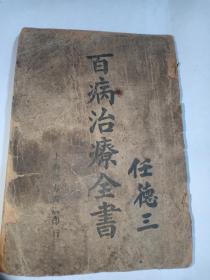 百病治療全書
任德三